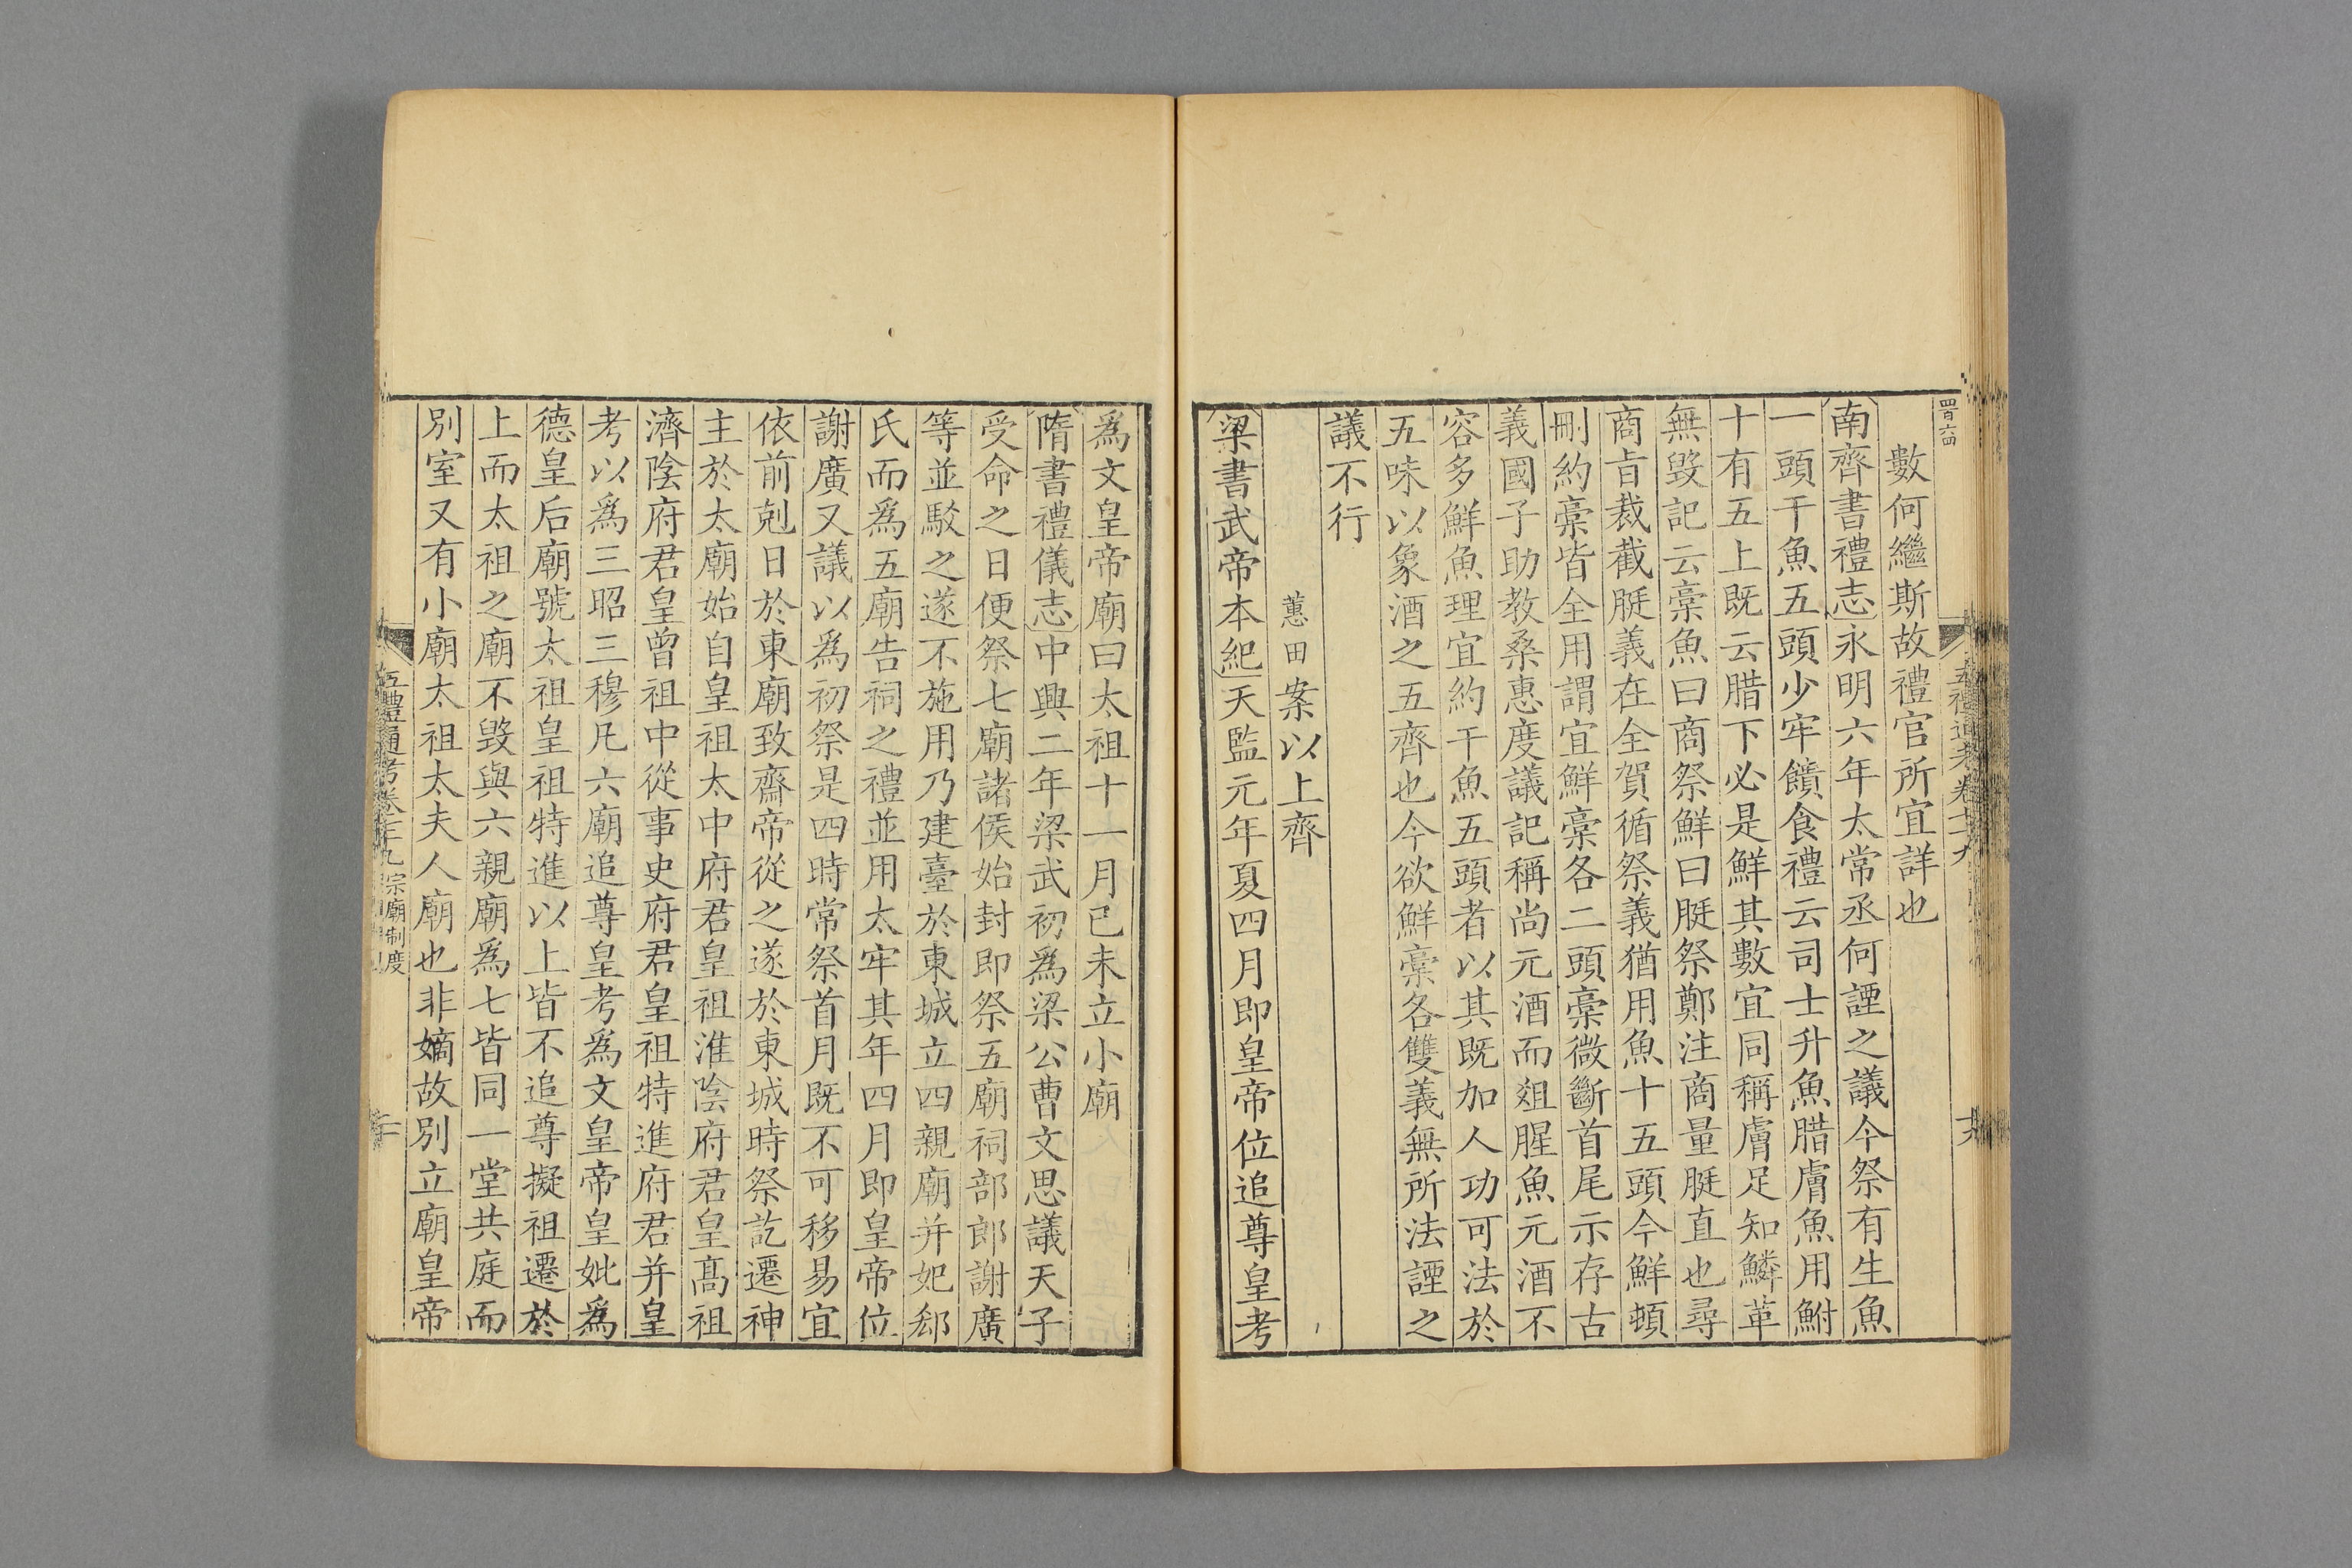 四百六四
數何繼斯故禮官所宜詳也
南齊書禮志永明六年太常丞何諲之議今祭有生魚
一頭干魚五頭少牢饋食禮云司士升魚腊膚魚用鮒
十有五上既云腊下必是鮮其數宜同稱膚足知鱗革
無毀記云槀魚曰商祭鮮曰脡祭鄭注商量脡直也尋
商旨裁截脡義在全賀循祭義猶用魚十五頭今鮮頓
刪約槀皆全用謂宜鮮槀各二頭槀微斷首尾示存古
義國子助教桑惠度議記稱尚元酒而俎腥魚元酒不
容多鮮魚理宜約干魚五頭者以其既加人功可法於
五味以象酒之五齊也今欲鮮槀各雙義無所法諲之
議不行
蕙田案以上齊
梁書武帝本紀天監元年夏四月即皇帝位追尊皇考
為文皇帝廟曰太祖十一月己未立小廟
隋書禮儀志中興二年梁武初為梁公曹文思議天子
受命之日便祭七廟諸侯始封即祭五廟祠部郎謝廣
等並駁之遂不施用乃建臺於東城立四親廟并妃郄
氏而為五廟告祠之禮並用太牢其年四月即皇帝位
謝廣又議以為初祭是四時常祭首月既不可移易宜
依前剋日於東廟致齋帝從之遂於東城時祭訖遷神
主於太廟始自皇祖太中府君皇祖淮陰府君皇高祖
濟陰府君皇曾祖中從事史府君皇祖特進府君并皇
考以為三昭三穆凡六廟追尊皇考為文皇帝皇妣為
德皇后廟號太祖皇祖特進以上皆不追尊擬祖遷於
上而太祖之廟不毀與六親廟為七皆同一堂共庭而
別室又有小廟太祖太夫人廟也非嫡故別立廟皇帝
五禮通考卷 宗廟制度